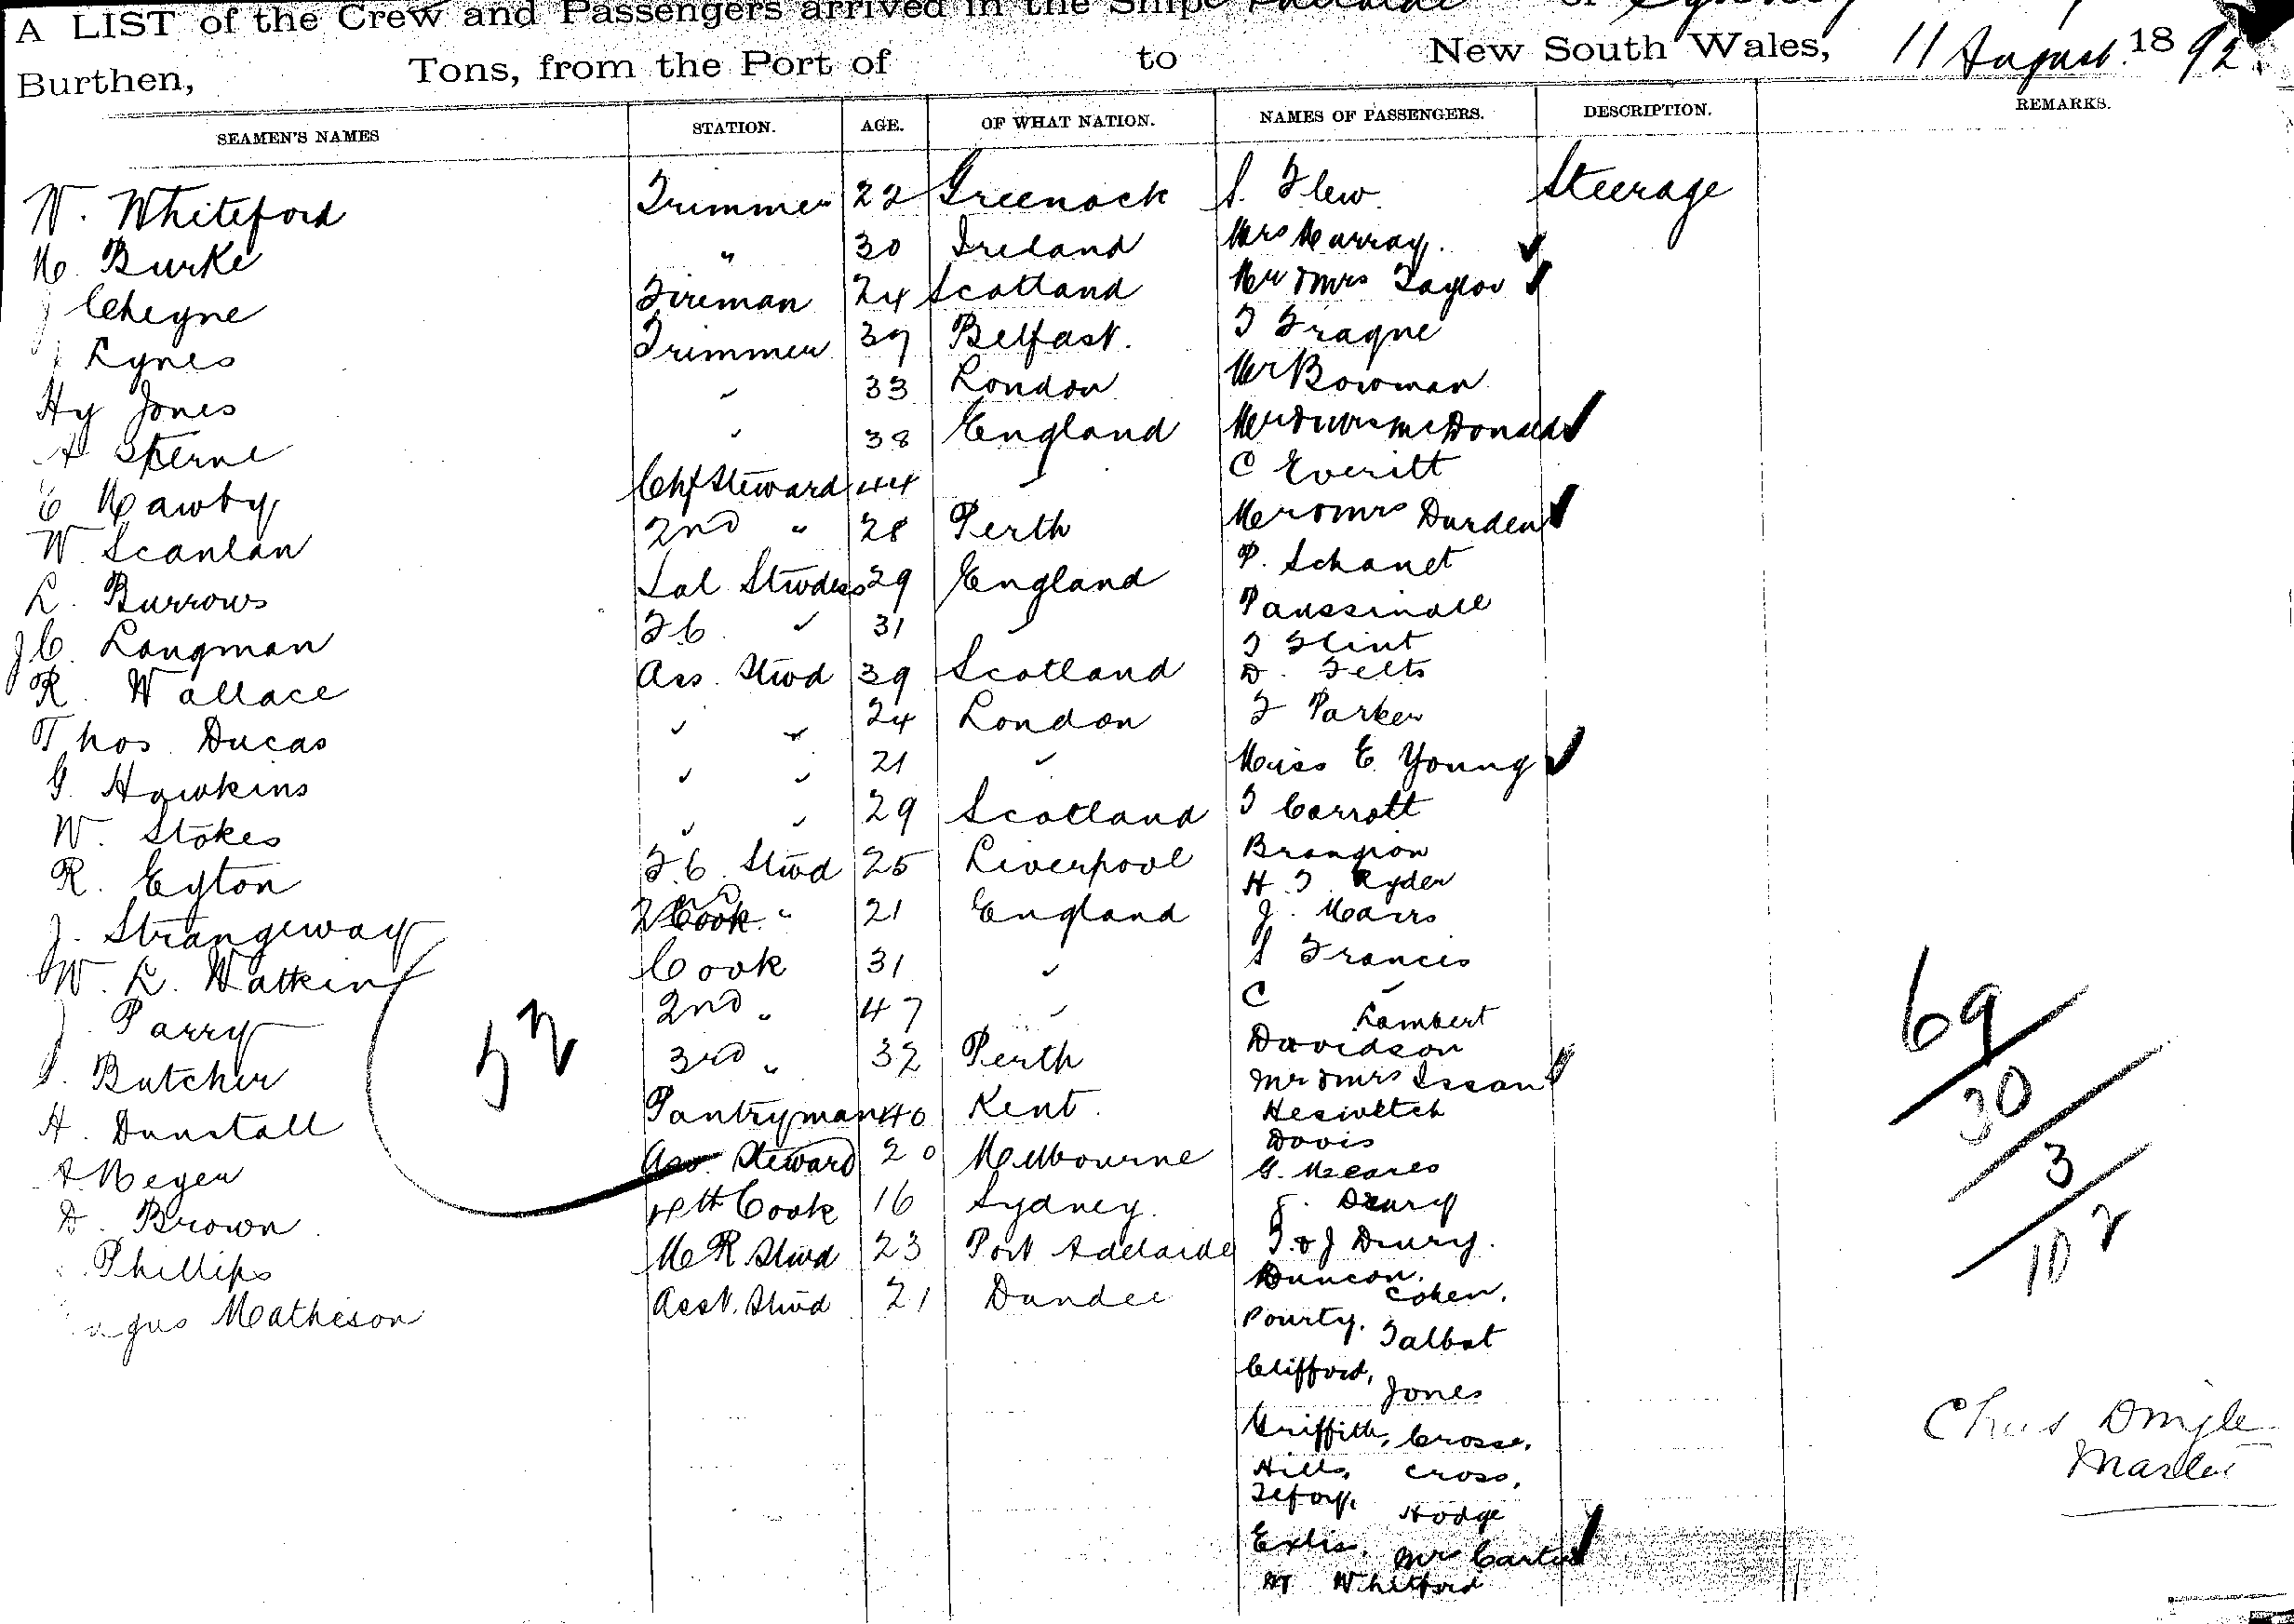 A LIST of the Crew and Passengers arrived in the Ship Adelaide of Sydney
Burthen, Tons, from the Port of to New South Wales, 11 August 1892
SEAMEN'S NAMES STATION. AGE. OF WHAT NATION. NAMES OF PASSENGERS. DESCRIPTION. REMARKS.
W. Whiteford Trimmer 22 Greenock S. Flew Steerage
M. Burke " 30 Ireland Mrs Murray
J Cheyne Fireman 24 Scotland Mr & Mrs Taylor
J Lynes Trimmer 39 Belfast. T
Hy Jones " 33 London Mr Bowman
A Sterne " 38 England Mr & Mrs McDonald
C Mawby Chf Steward 44 " C Everitt
W. Scanlan 2nd " 28 Perth Mr & Mrs Durden
L. Burrows Sal Stwdess 29 England P. Schanet
J C. Langman F C " 31 "
R. Wallace Ass. Stwd 39 Scotland T Flint
D. Felts
Thos Ducas " " 24 London F Parker
G. Hawkins " " 21 " Miss E. Young
W. Stokes " " 29 Scotland T Carrott
R. Eyton F.C. Stwd 25 Liverpool
H. T. Ryder
J. Strangeway 2nd Cook " 21 England J. Mairs
W. L. Watkins Cook 31 " S Francis
J. Parry 2nd " 47 " C "
Lambert
J. Butcher 3rd " 32 Perth Davidson
Mr & Mrs Issan
H. Dunstall Pantryman 40 Kent.
Davis
A Meyer Ass. Steward 20 Melbourne G. Meares
D. Brown 4th Cook 16 Sydney. Drury
Phillips M R Stwd 23 Port Adelaide T. & J Drury.
Duncan.
Cohen.
Matheson Asst. Stwd 21 Dundee Pourty.
Talbot
Clifford,
Jones
Griffith, Crosse,
Hills, Cross,
Hodge
Mrs Carter
Whitford
52
69
30
3
102
Chas Dingle
Master